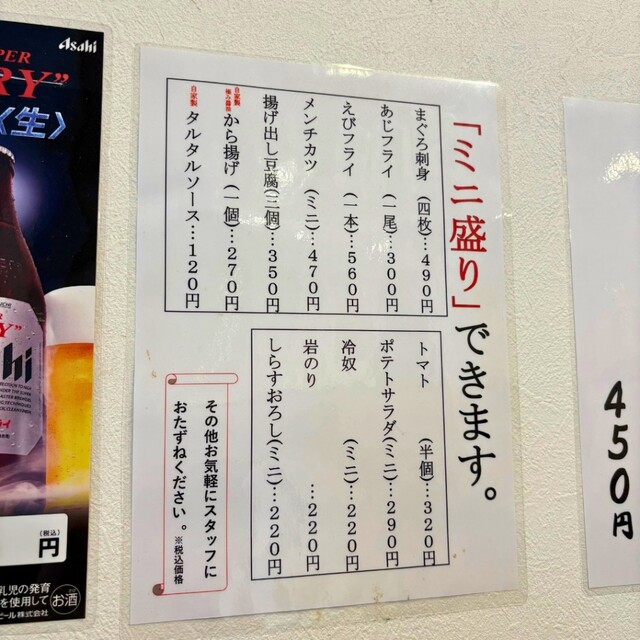 Asahi
SUPER
RY”
〈生〉
(税込)
円
乳児の発育
を使用して
お酒
ビール株式会社
「ミニ盛り」できます。
まぐろ刺身（四枚）…490円
あじフライ（一尾）…300円
えびフライ（一本）…560円
メンチカツ（ミニ）…470円
揚げ出し豆腐(三個)…350円
から揚げ（一個）…270円
自家製 タルタルソース…120円
トマト（半個）…320円
ポテトサラダ(ミニ)…290円
冷奴（ミニ）…220円
岩のり…220円
しらすおろし(ミニ)…220円
その他お気軽にスタッフに
おたずねください。※税込価格
450円